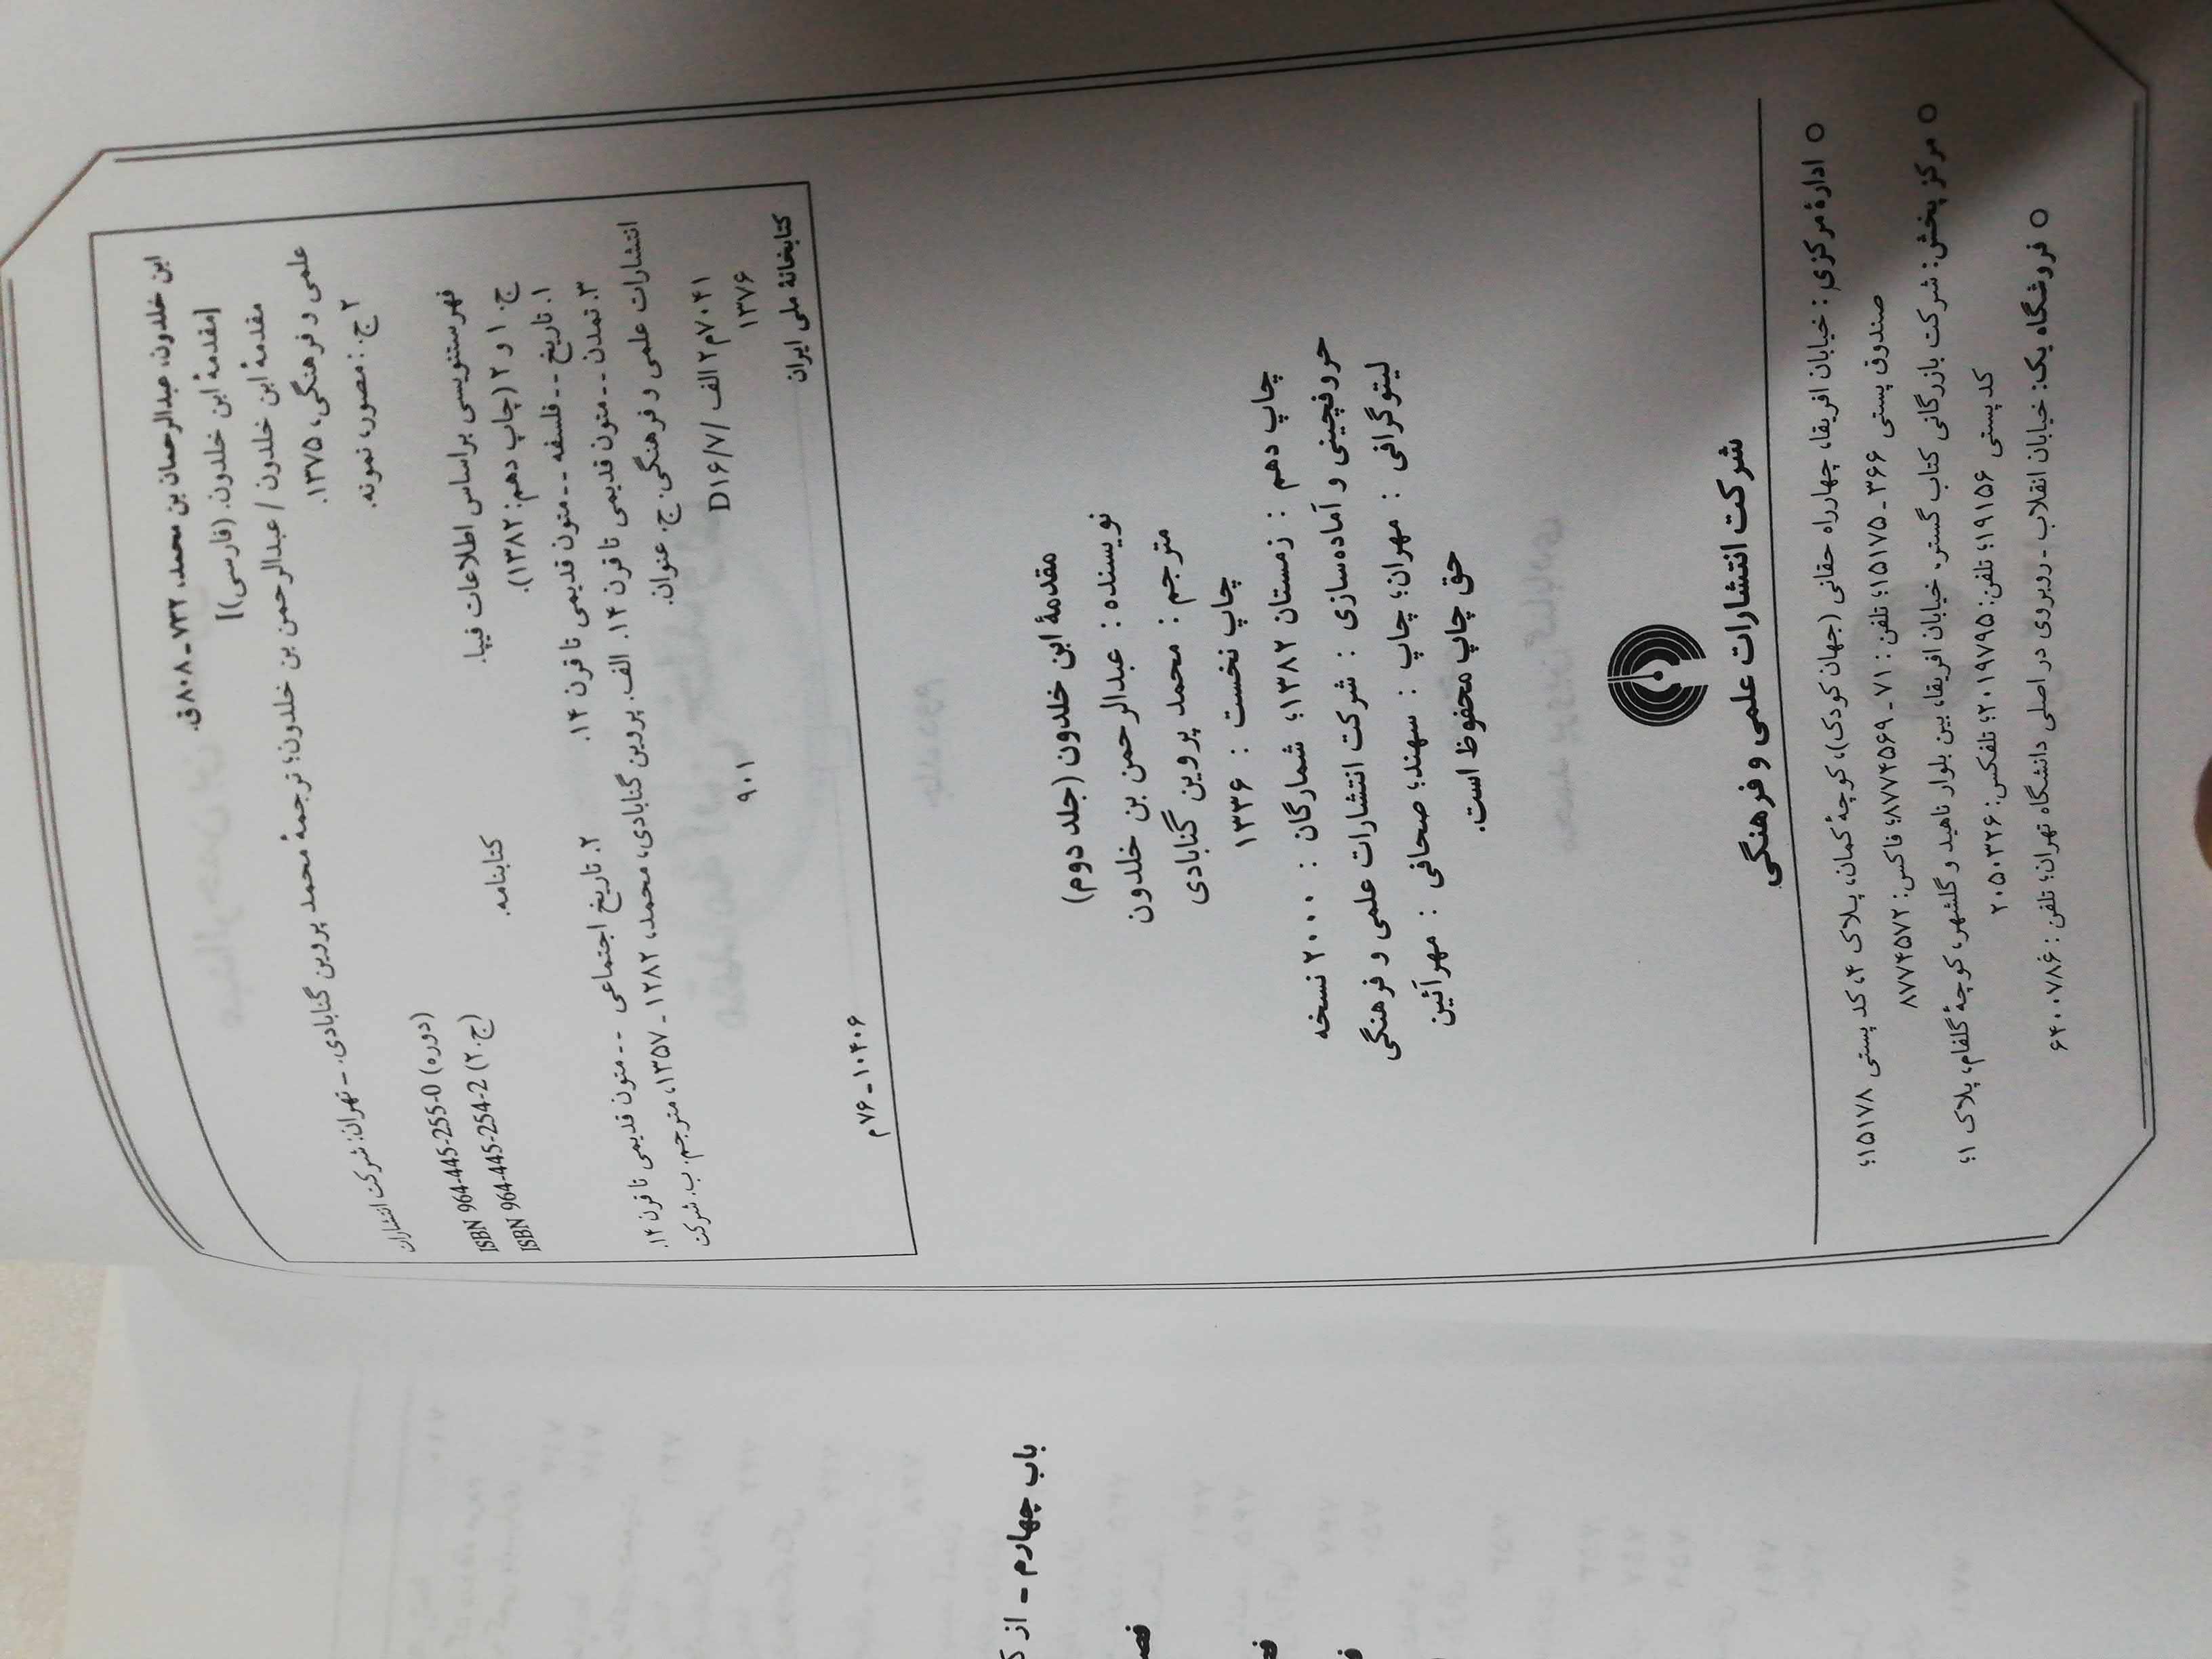 ابن خلدون، عبدالرحمان بن محمد، ۷۳۲ ـ ۸۰۸ ق.
[مقدمهٔ ابن خلدون. (فارسی)]
مقدمهٔ ابن خلدون / عبدالرحمن بن خلدون؛ ترجمهٔ محمد پروین گنابادی. ـ تهران: شرکت انتشارات
علمی و فرهنگی، ۱۳۷۵.
۲ ج. : مصور، نمونه.
ISBN 964-445-255-0 (دوره)
ISBN 964-445-254-2 (ج.۲)
فهرستنویسی براساس اطلاعات فیپا.
کتابنامه.
ج. ۱ و ۲ (چاپ دهم: ۱۳۸۲).
۱. تاریخ -- فلسفه -- متون قدیمی تا قرن ۱۴. ۲. تاریخ اجتماعی -- متون قدیمی تا قرن ۱۴.
۳. تمدن -- متون قدیمی تا قرن ۱۴. الف. پروین گنابادی، محمد، ۱۲۸۲ ـ ۱۳۵۷، مترجم. ب. شرکت
انتشارات علمی و فرهنگی. ج. عنوان.
۷۰۴۱م ۲ الف / D۱۶/۷ ۹۰۱
۱۳۷۶
کتابخانهٔ ملی ایران ۱۰۴۰۶ ـ ۷۶م
مقدمهٔ ابن خلدون (جلد دوم)
نویسنده : عبدالرحمن بن خلدون
مترجم : محمد پروین گنابادی
چاپ نخست : ۱۳۳۶
چاپ دهم : زمستان ۱۳۸۲؛ شمارگان : ۲۰۰۰ نسخه
حروفچینی و آماده‌سازی : شرکت انتشارات علمی و فرهنگی
لیتوگرافی : مهران؛ چاپ : سهند؛ صحافی : مهرآئین
حق چاپ محفوظ است.
شرکت انتشارات علمی و فرهنگی
○ ادارهٔ مرکزی : خیابان افریقا، چهارراه حقانی (جهان کودک)، کوچهٔ کمان، پلاک ۴، کد پستی ۱۵۱۷۸؛
صندوق پستی ۳۶۶ ـ ۱۵۱۷۵؛ تلفن : ۷۱ ـ ۸۷۷۴۵۶۹؛ فاکس: ۸۷۷۴۵۷۲
○ مرکز پخش: شرکت بازرگانی کتاب گستر. خیابان افریقا، بین بلوار ناهید و گلشهر، کوچهٔ گلفام، پلاک ۱؛
کد پستی ۱۹۱۵۶؛ تلفن: ۲۰۱۹۷۹۵؛ تلفکس: ۲۰۵۰۳۲۶
○ فروشگاه یک: خیابان انقلاب ـ روبروی در اصلی دانشگاه تهران؛ تلفن : ۶۴۰۰۷۸۶
باب چهارم - از